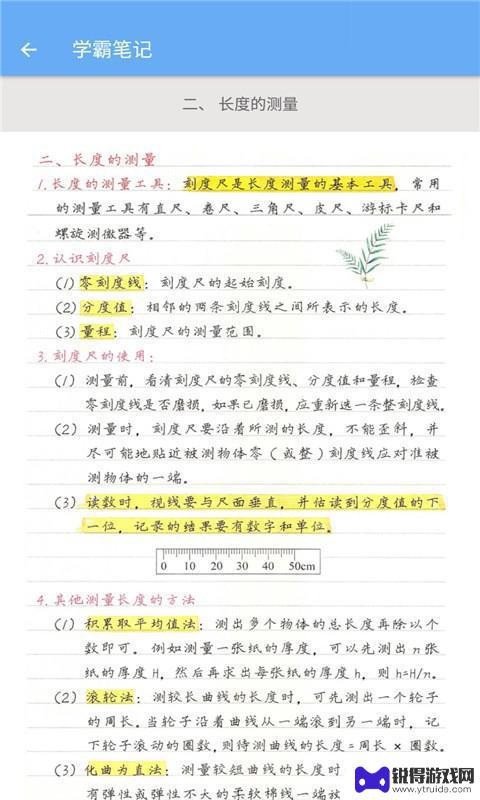 学霸笔记
二、 长度的测量
二、长度的测量
1.长度的测量工具：刻度尺是长度测量的基本工具，常用
的测量工具有直尺、卷尺、三角尺、皮尺、游标卡尺和
螺旋测微器等。
2.认识刻度尺
(1)零刻度线：刻度尺的起始刻度。
(2)分度值：相邻的两条刻度线之间所表示的长度。
(3)量程：刻度尺的测量范围。
3.刻度尺的使用：
(1) 测量前，看清刻度尺的零刻度线、分度值和量程，检查
零刻度线是否磨损，如果已磨损，应重新选一条整刻度线。
(2) 测量时，刻度尺要沿着所测的长度，不能歪斜，并
尽可能地贴近被测物体零（或整）刻度线应对准被
测物体的一端。
(3) 读数时，视线要与尺面垂直，并估读到分度值的下
一位，记录的结果要有数字和单位。
0 10 20 30 40 50cm
4.其他测量长度的方法
(1) 积累取平均值法：测出多个物体的总长度再除以个
数即可。例如测量一张纸的厚度，可以先测出n张
纸的厚度H，然后再求出每张纸的厚度h，则h=H/n。
(2) 滚轮法：测较长曲线的长度时，可先测出一个轮子
的周长。当轮子沿着曲线从一端滚到另一端时，记
下轮子滚动的圈数，则待测曲线的长度=周长×圈数。
(3) 化曲为直法：测量较短曲线的长度时
有弹性或弹性不大的柔软棉线一端放
锐得游戏网
www.ytruide.com